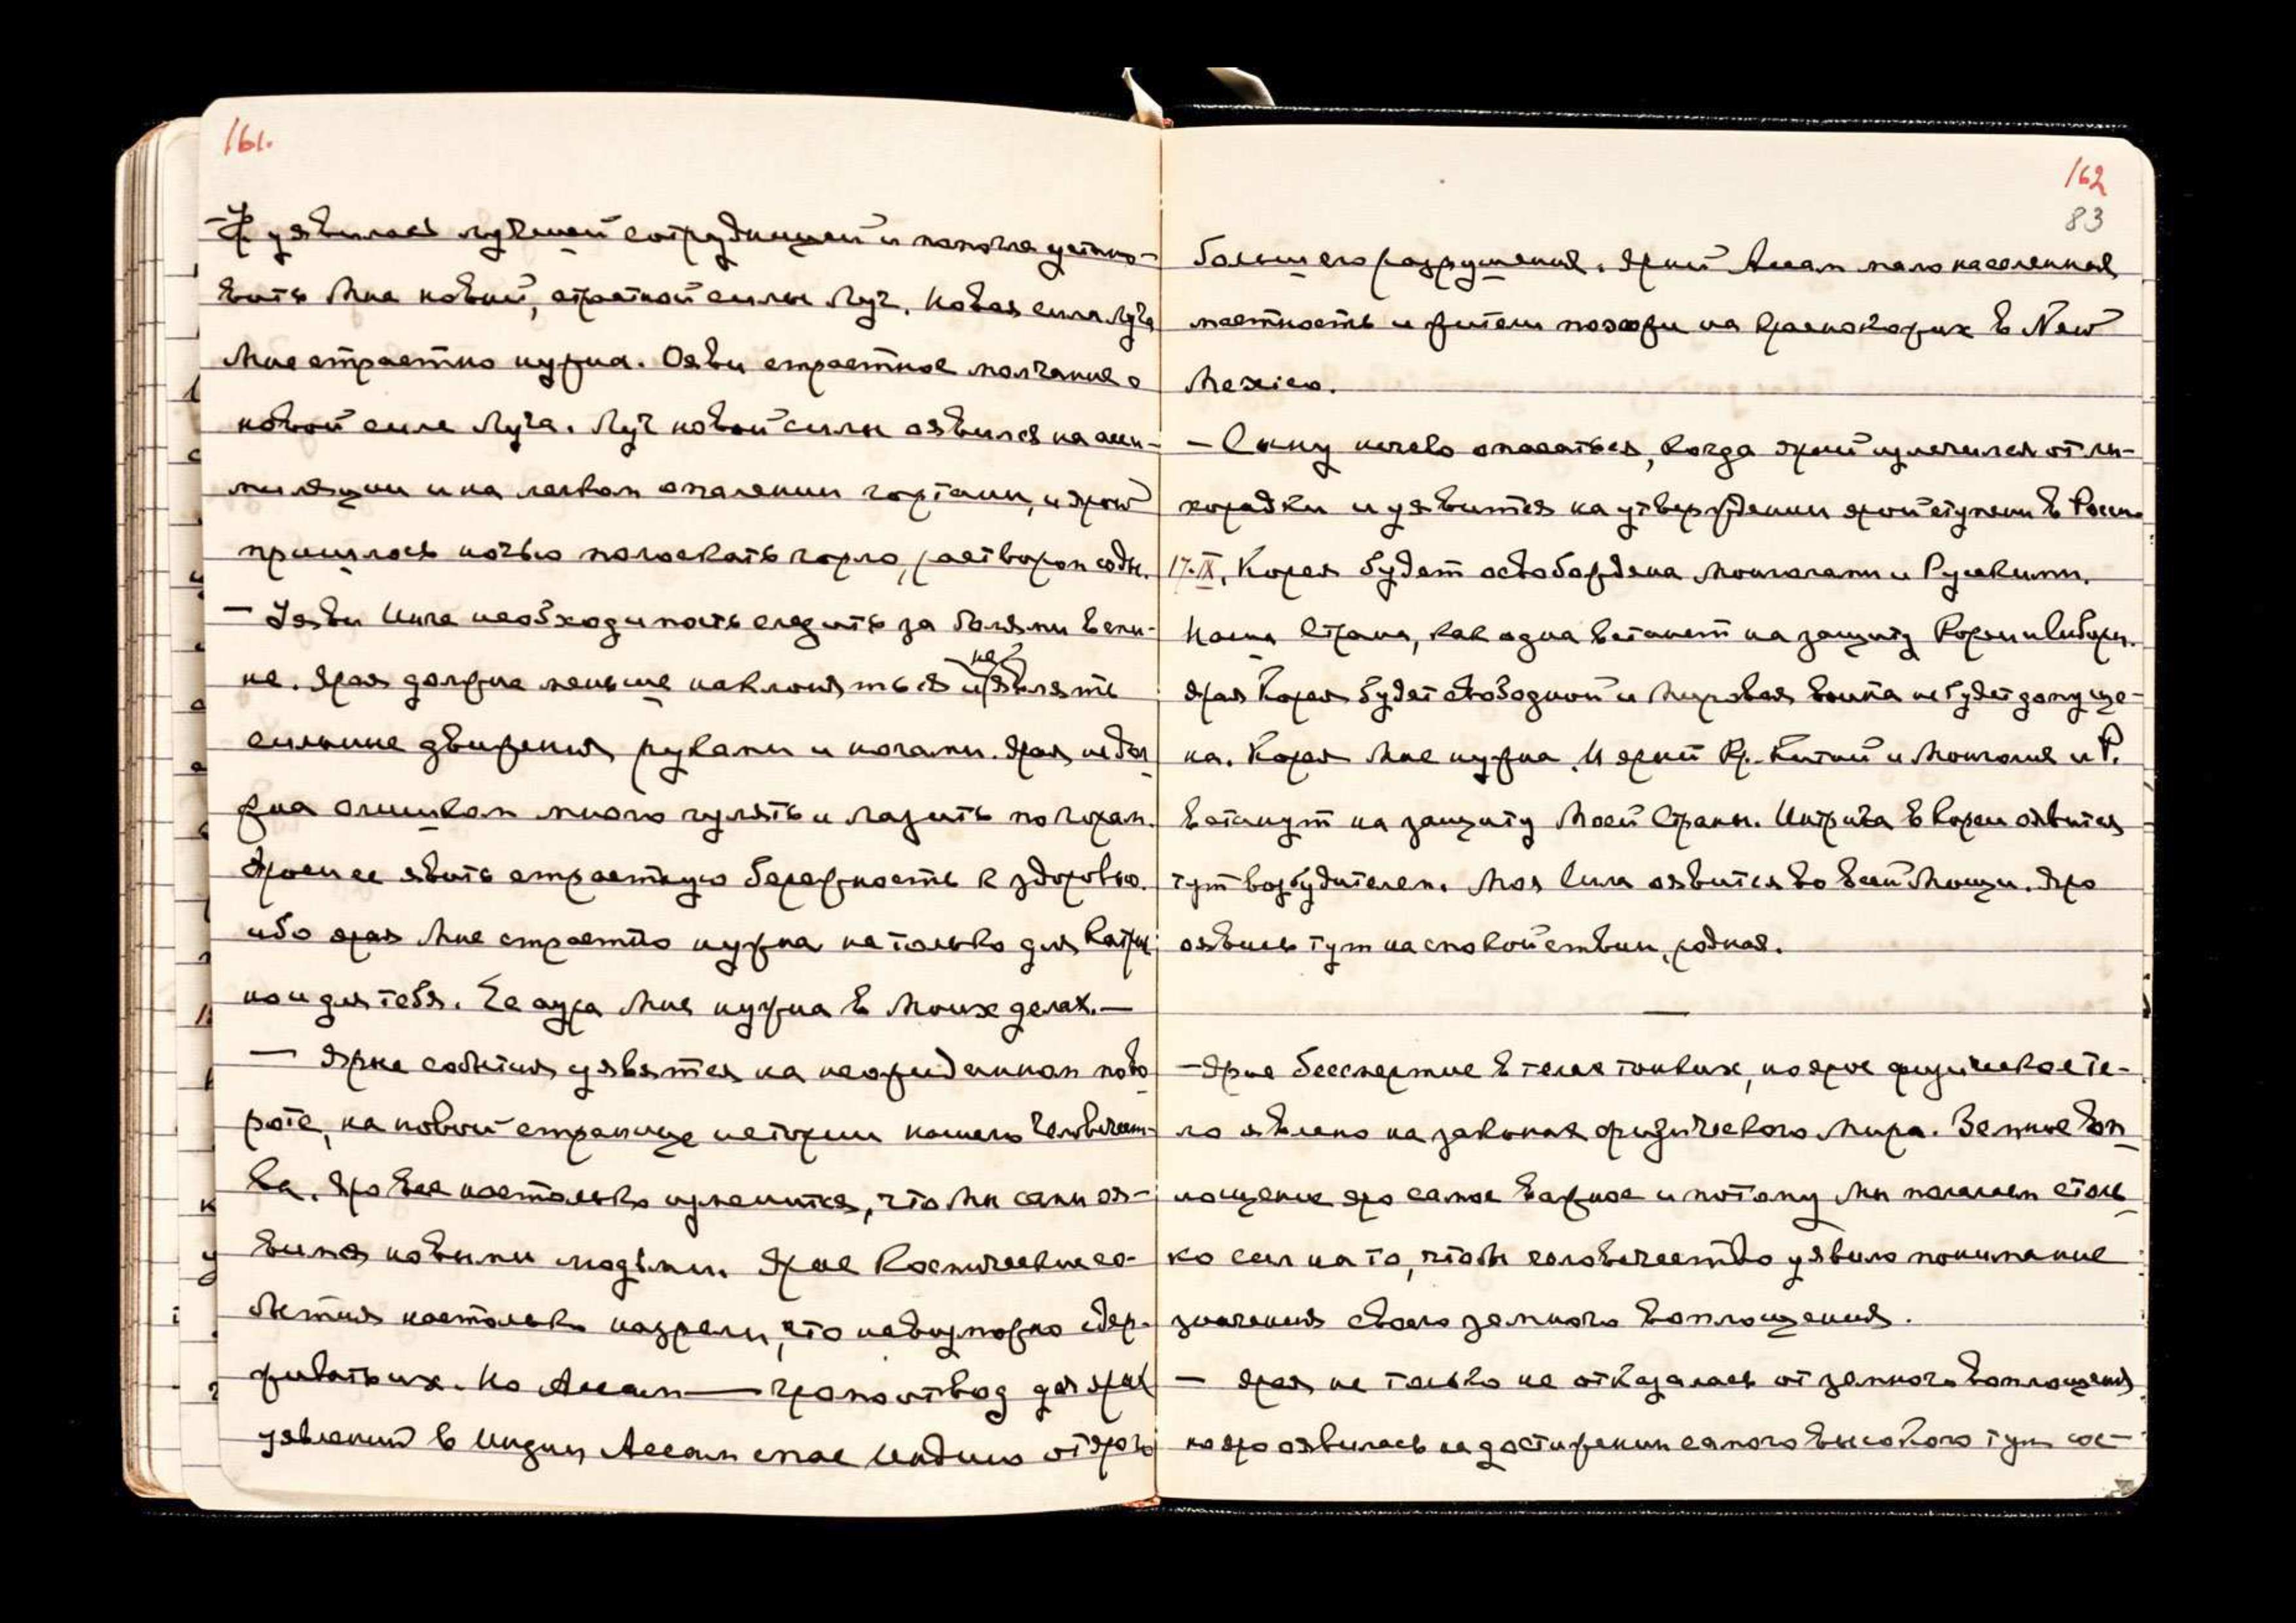 161.
– Я уявилась лучшей сотрудницей и помогла устано-
вить Мне новый, страстной силы Луч. Новая сила Луча
Мне страстно нужна. Ояви страстное молчание о
новой силе Луча. Луч новой силы оявился на асси-
миляции и на легком опалении гортани, и ярой
пришлось ночью полоскать горло, раствором соды.
– Уяви Инге необходимость следить за болями в спи-
не. Ярая должна меньше наклоняться и не являть
сильные движения руками и ногами. Ярая не дол-
жна слишком много гулять и лазить по горам.
Проси ее явить страстную бережность к здоровью.
ибо ярая Мне страстно нужна не только для Катрин,
но и для тебя. Ее аура Мне нужна в Моих делах. —
— Яркие события уявятся на неожиданном пово-
роте, на новой странице истории нашего человечест-
ва. Яро все настолько изменится, что Мы сами оя-
вимся новыми людьми. Ярые Космические со-
бытия настолько назрели, что невозможно сдер-
живать их. Но Ассам — громоотвод для ярых
уявлений в Индии, Ассам спас Индию от ярого
162
83
большего разрушения. Ярый Ассам мало населенная
местность и жители похожи на краснокожих в New
Mexico.
– Сыну нечего опасаться, когда ярый излечился от ли-
хорадки и уявится на утверждении ярой ступени в России.
17.IX. Корея будет освобождена Монголами и Русскими.
Наша Страна, как одна встанет на защиту Кореи и Сибири.
Ярая Корея будет свободной и Мировая война не будет допуще-
на. Корея Мне нужна. И ярый Кр. Китай и Монголия и Р.
встанут на защиту Моей Страны. Интрига в Корее оявится
тут возбудителем. Моя Сила оявится во всей Мощи. Яро
оявись тут на спокойствии, родная.
—
– Ярые бессмертные в телах тонких, но ярое физическое те-
ло явлено на законах физического Мира. Земное воп-
лощение яро самое важное и потому Мы полагаем столь-
ко сил на то, чтобы человечество уявило понимание
значения своего земного воплощения.
– Ярая не только не отказалась от земного воплощения,
но яро оявилась на достижении самого высокого тут сос-